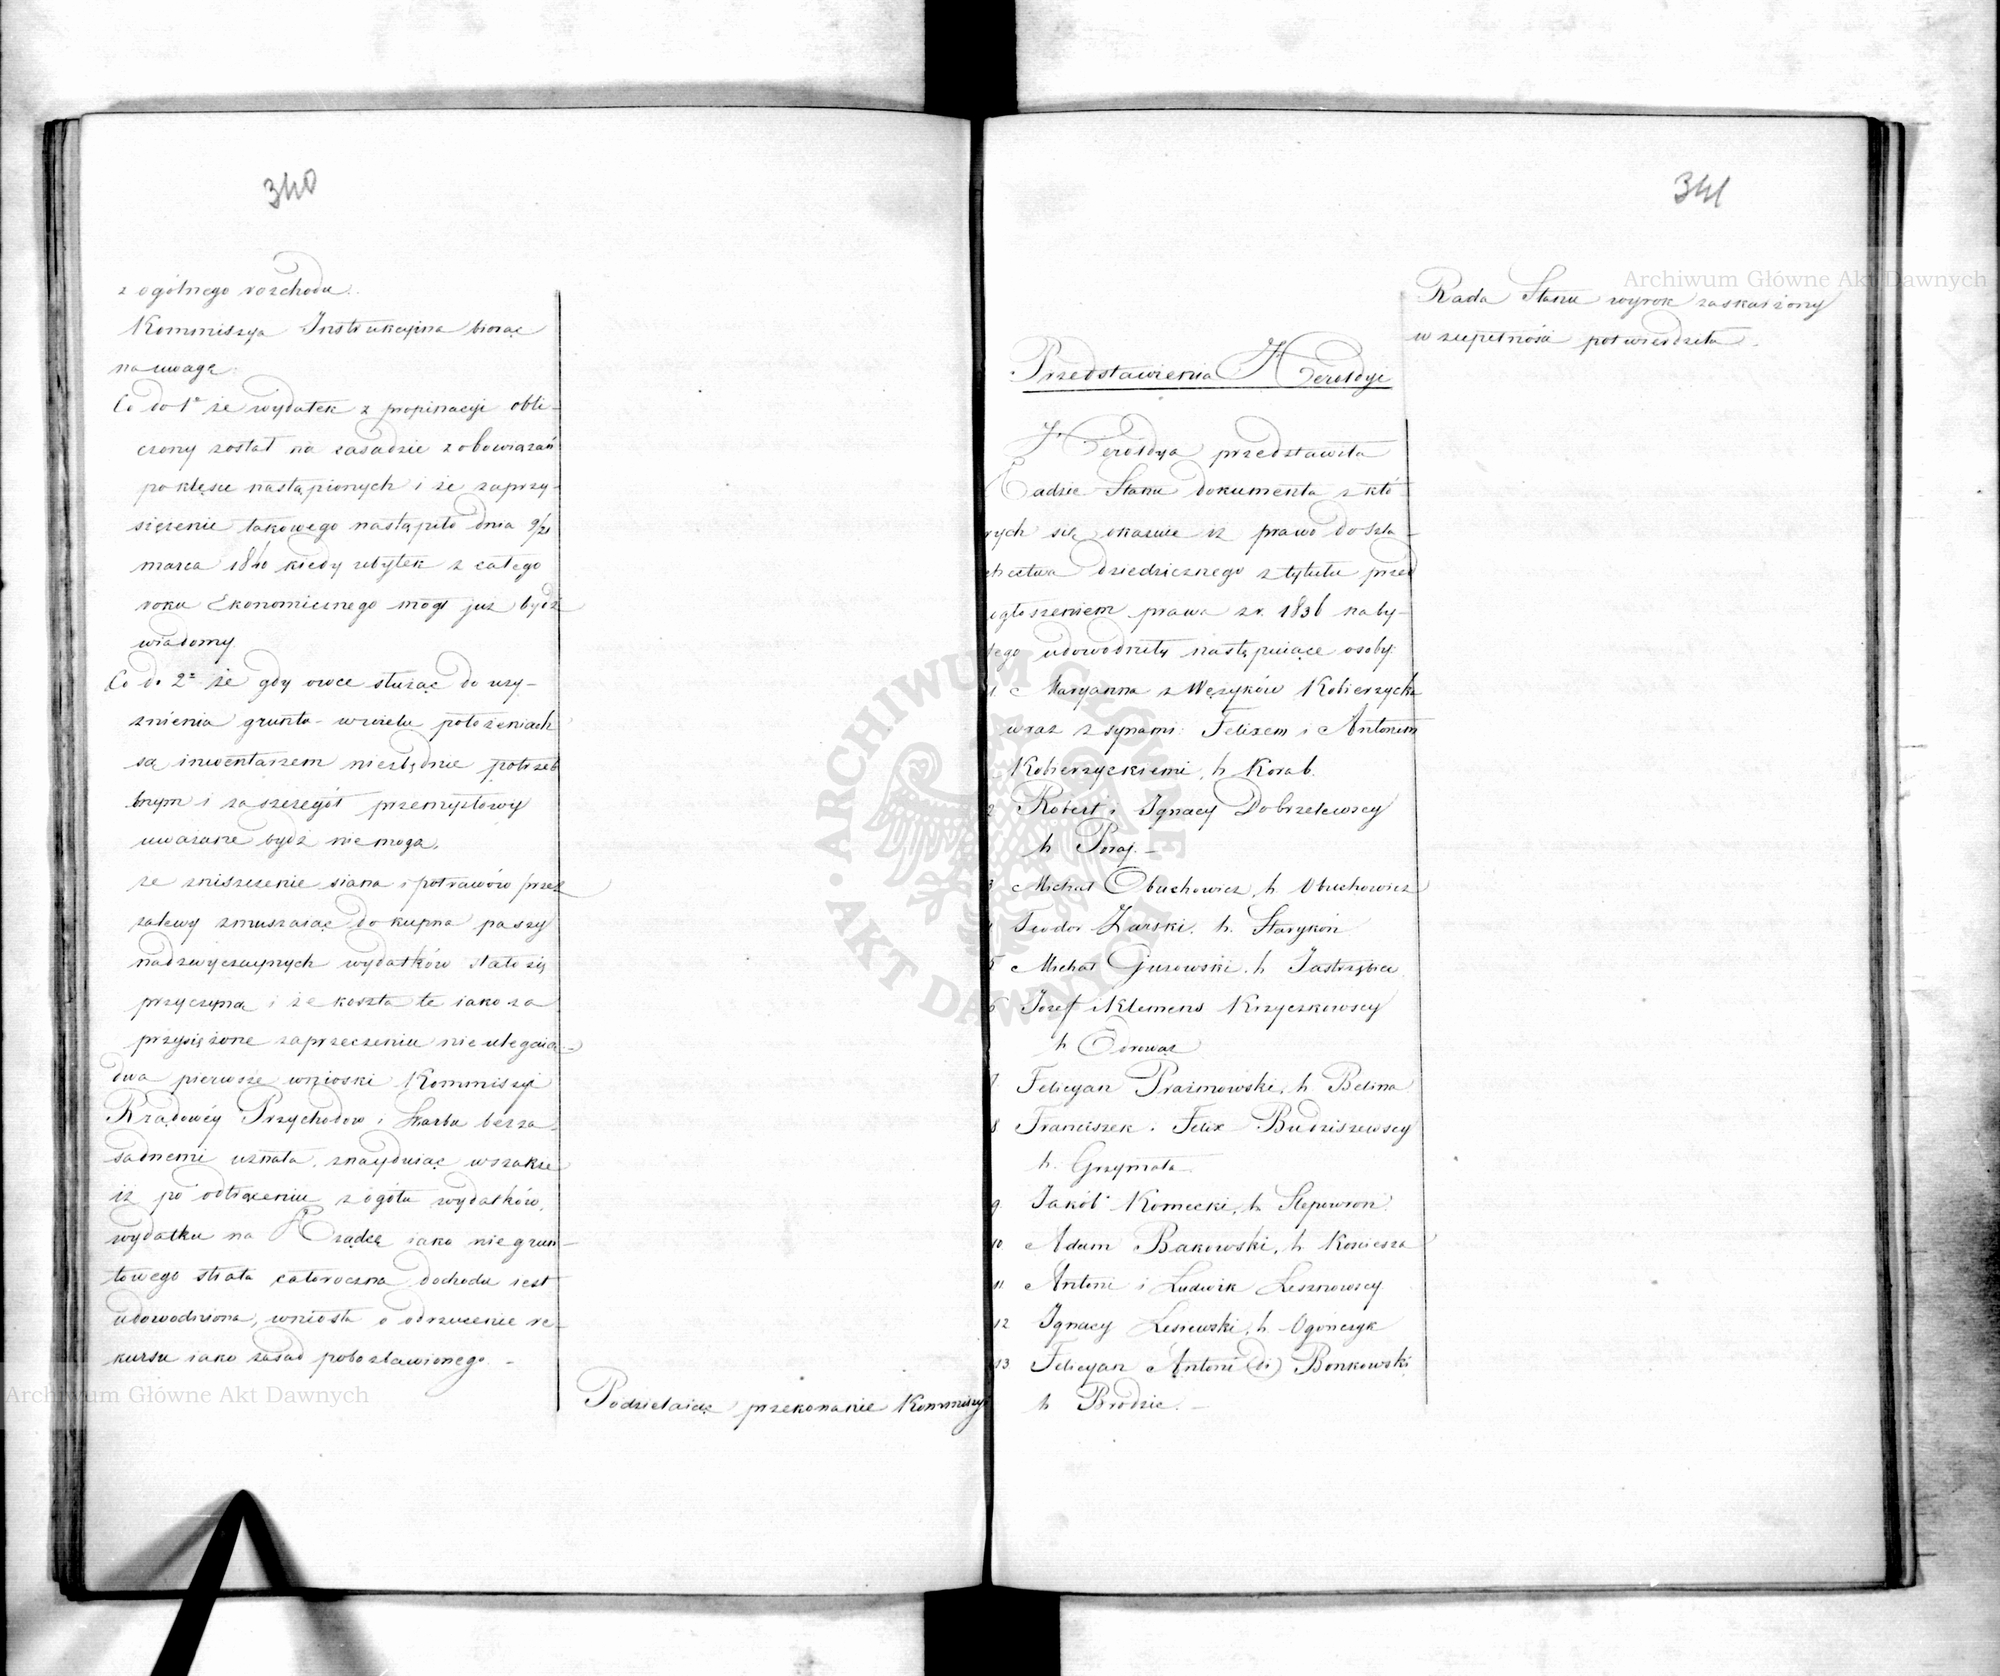 340
z ogólnego rozchodu.
Kommissya Instrukcyina biorąc
na uwagę:
Co do 1º że wydatek z propinacyi obli-
czony został na zasadzie zobowiązań
po klęsce nastąpionych i że zaprzy-
siężenie takowego nastąpiło dnia 9/21
marca 1840 kiedy ubytek z całego
roku Ekonomicznego mógł już bydź
wiadomy.
Co do 2º że gdy owce służąc do uży-
źnienia gruntu w wielu położeniach
są inwentarzem niezbędnie potrzeb
bnym i za szczegół przemysłowy
uważane bydź nie mogą,
że zniszczenie siana i potrawów przez
zalewy zmuszaiąc do kupna paszy
nadzwyczaynych wydatków stało się
przyczyną i że koszta te iako za
przysiężone zaprzeczeniu nie ulegaią –
dwa pierwsze wnioski Kommissyi
Rządowéy Przychodów i Skarbu bezza-
sadnemi uznała, znayduiąc wszakże
iż po odtrąceniu z ogółu wydatków,
wydatku na Rządcę iako nie grun-
towego strata całoroczna dochodu iest
udowodniona, wniosła o odrzucenie re-
kursu iako zasad pobozbawionego. –
Podzielaiąc przekonanie Kommissyi
341
Rada Stanu wyrok zaskarżony
w zupełności potwierdziła.
Przedstawienia Heroldyi
Heroldya przedstawiła
Radzie Stanu dokumenta z któ-
rych się okazuie iż prawo do szla-
chectwa dziedzicznego z tytułu przed
ogłoszeniem prawa z r. 1836 naby-
tego udowodniły następuiące osoby:
1. Maryanna z Wężyków Kobierzycka
wraz z synami: Felixem i Antonim
Kobierzyckiemi, h. Korab.
2 Robert i Ignacy Dobrzelewscy
h Poraj. –
3 Michał Obuchowicz, h. Obuchowicz
4 Teodor Żarski. h. Starykoń
5 Michał Gurowski. h Jastrzębiec.
6 Jozef i Klemens Krzyczkowscy
h Odrowąż
7 Felicyan Prażmowski, h. Belina
8 Franciszek i Felix Budziszewscy
h. Grzymała
9 Jakób Komecki, h Slepowron.
10 Adam Bakowski, h Kościesza
11 Antoni i Ludwik Lesznowscy.
12 Ignacy Lesiewski, h. Ogończyk
13 Felicyan Antoni (2i) Bonkowski
h Brodzic. –
Archiwum Główne Akt Dawnych
Archiwum Główne Akt Dawnych
ARCHIWUM GŁÓWNE AKT DAWNYCH